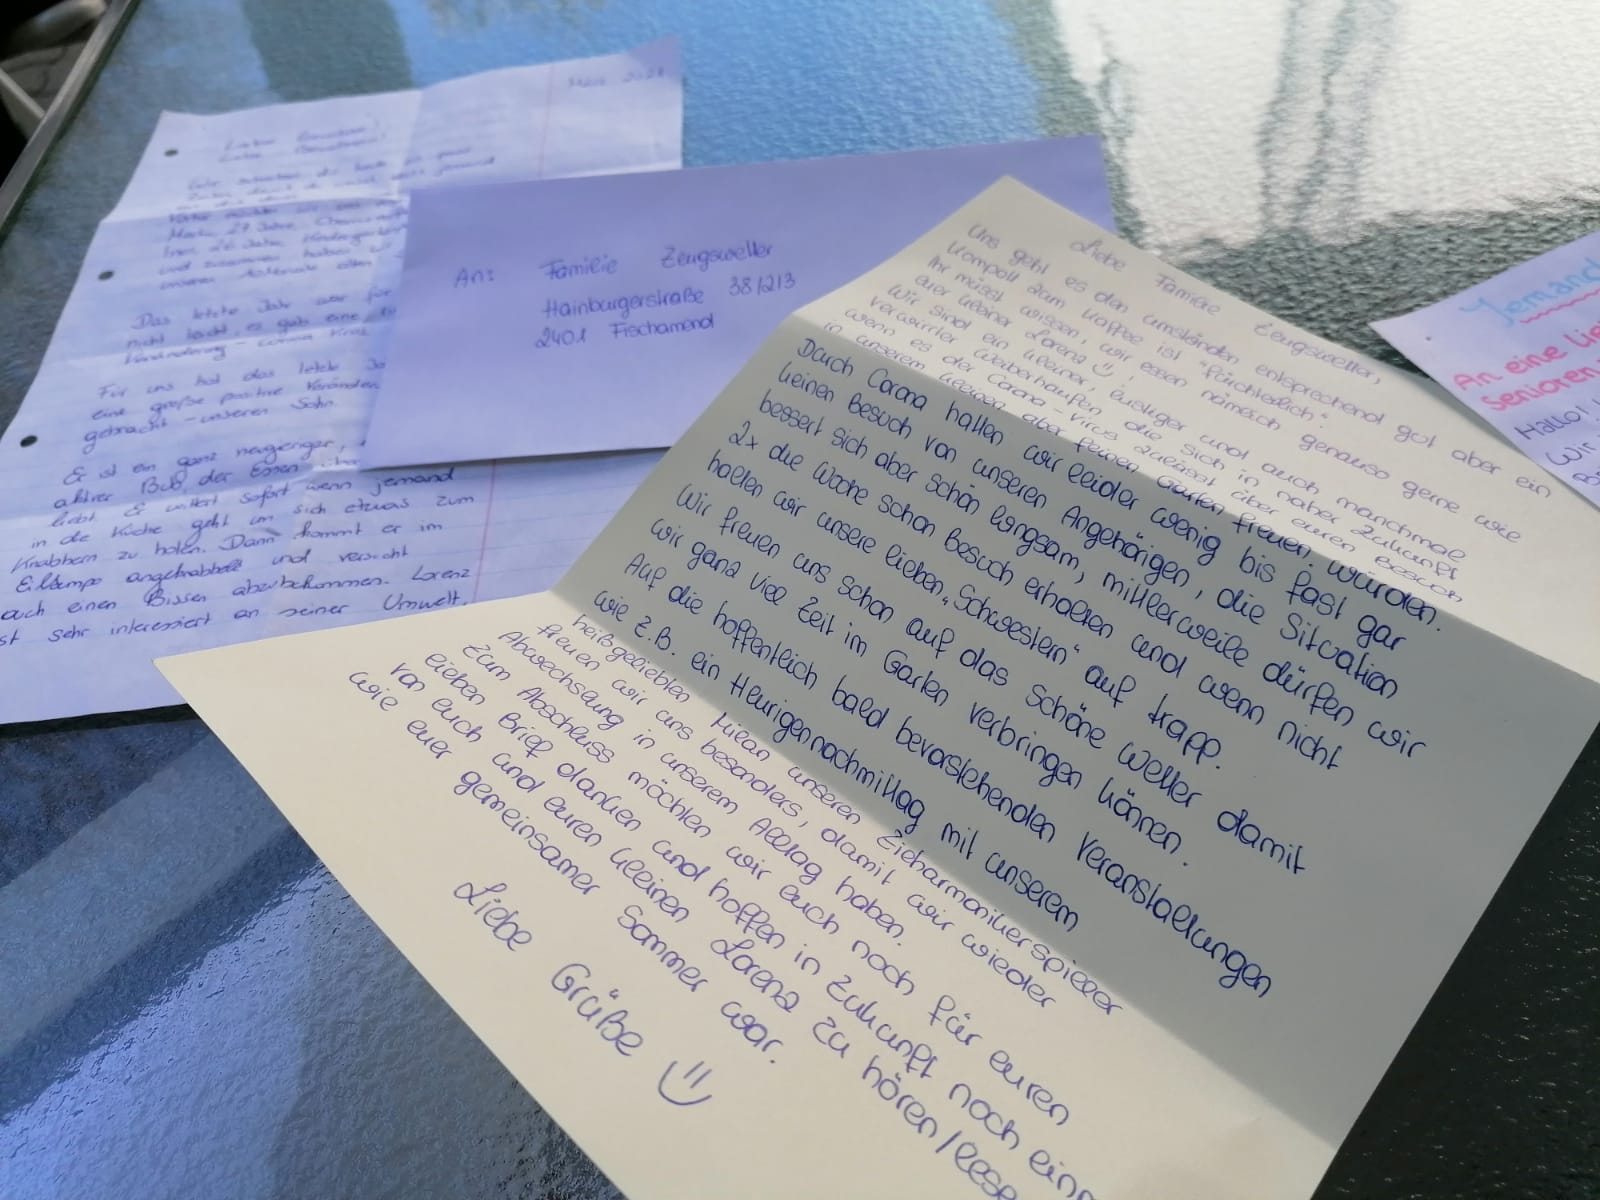 März 2021
Liebe Bewohner!
Liebe Bewohnerinnen!
Das letzte Jahr war für
nicht leicht, es gab eine
Veränderung -
Für uns hat das letzte
eine große positive
gebracht - unseren Sohn.
Er ist ein ganz neugieriger,
aktiver Bub, der Essen über
liebt. Er wittert sofort wenn jemand
in die Küche geht um sich etwas zum
Knabbern zu holen. Dann kommt er im
Eiltempo angekrabbelt und versucht
auch einen Bissen abzubekommen. Lorenz
ist sehr interessiert an seiner Umwelt,
An: Familie Zeugswetter
Hainburgerstraße 38/2/3
2401 Fischamend
Liebe Familie Zeugswetter,
Uns geht es den Umständen entsprechend gut aber ein
Kompott zum Kaffee ist "fürchterlich".
Ihr müsst wissen, wir essen nämlich genauso gerne wie
euer kleiner Lorenz ☺.
Wir sind ein kleiner, lustiger und auch manchmal
verwirrter Weiberhaufen die sich in naher Zukunft
wenn es der Corona-Virus zulässt über euren Besuch
in unserem kleinen aber feinen Garten freuen würden.
Durch Corona hatten wir leider wenig bis fast gar
keinen Besuch von unseren Angehörigen, die Situation
bessert sich aber schön langsam, mittlerweile dürfen wir
2x die Woche schon Besuch erhalten und wenn nicht
halten wir unsere lieben "Schwestern" auf trapp.
Wir freuen uns schon auf das schöne Wetter damit
wir ganz viel Zeit im Garten verbringen können.
Auf die hoffentlich bald bevorstehenden Veranstaltungen
wie z.B. ein Heurigennachmittag mit unserem
heißgeliebten Milan unseren Ziehharmonikerspieler
freuen wir uns besonders, damit wir wieder
Abwechslung in unserem Alltag haben.
Zum Abschluss möchten wir euch noch für euren
lieben Brief danken und hoffen in Zukunft noch ein
von euch und euren kleinen Lorenz zu hören/lese
wie euer gemeinsamer Sommer war.
Liebe Grüße ☺
Jemand
An eine lie
Senioren
Hallo!
Wir